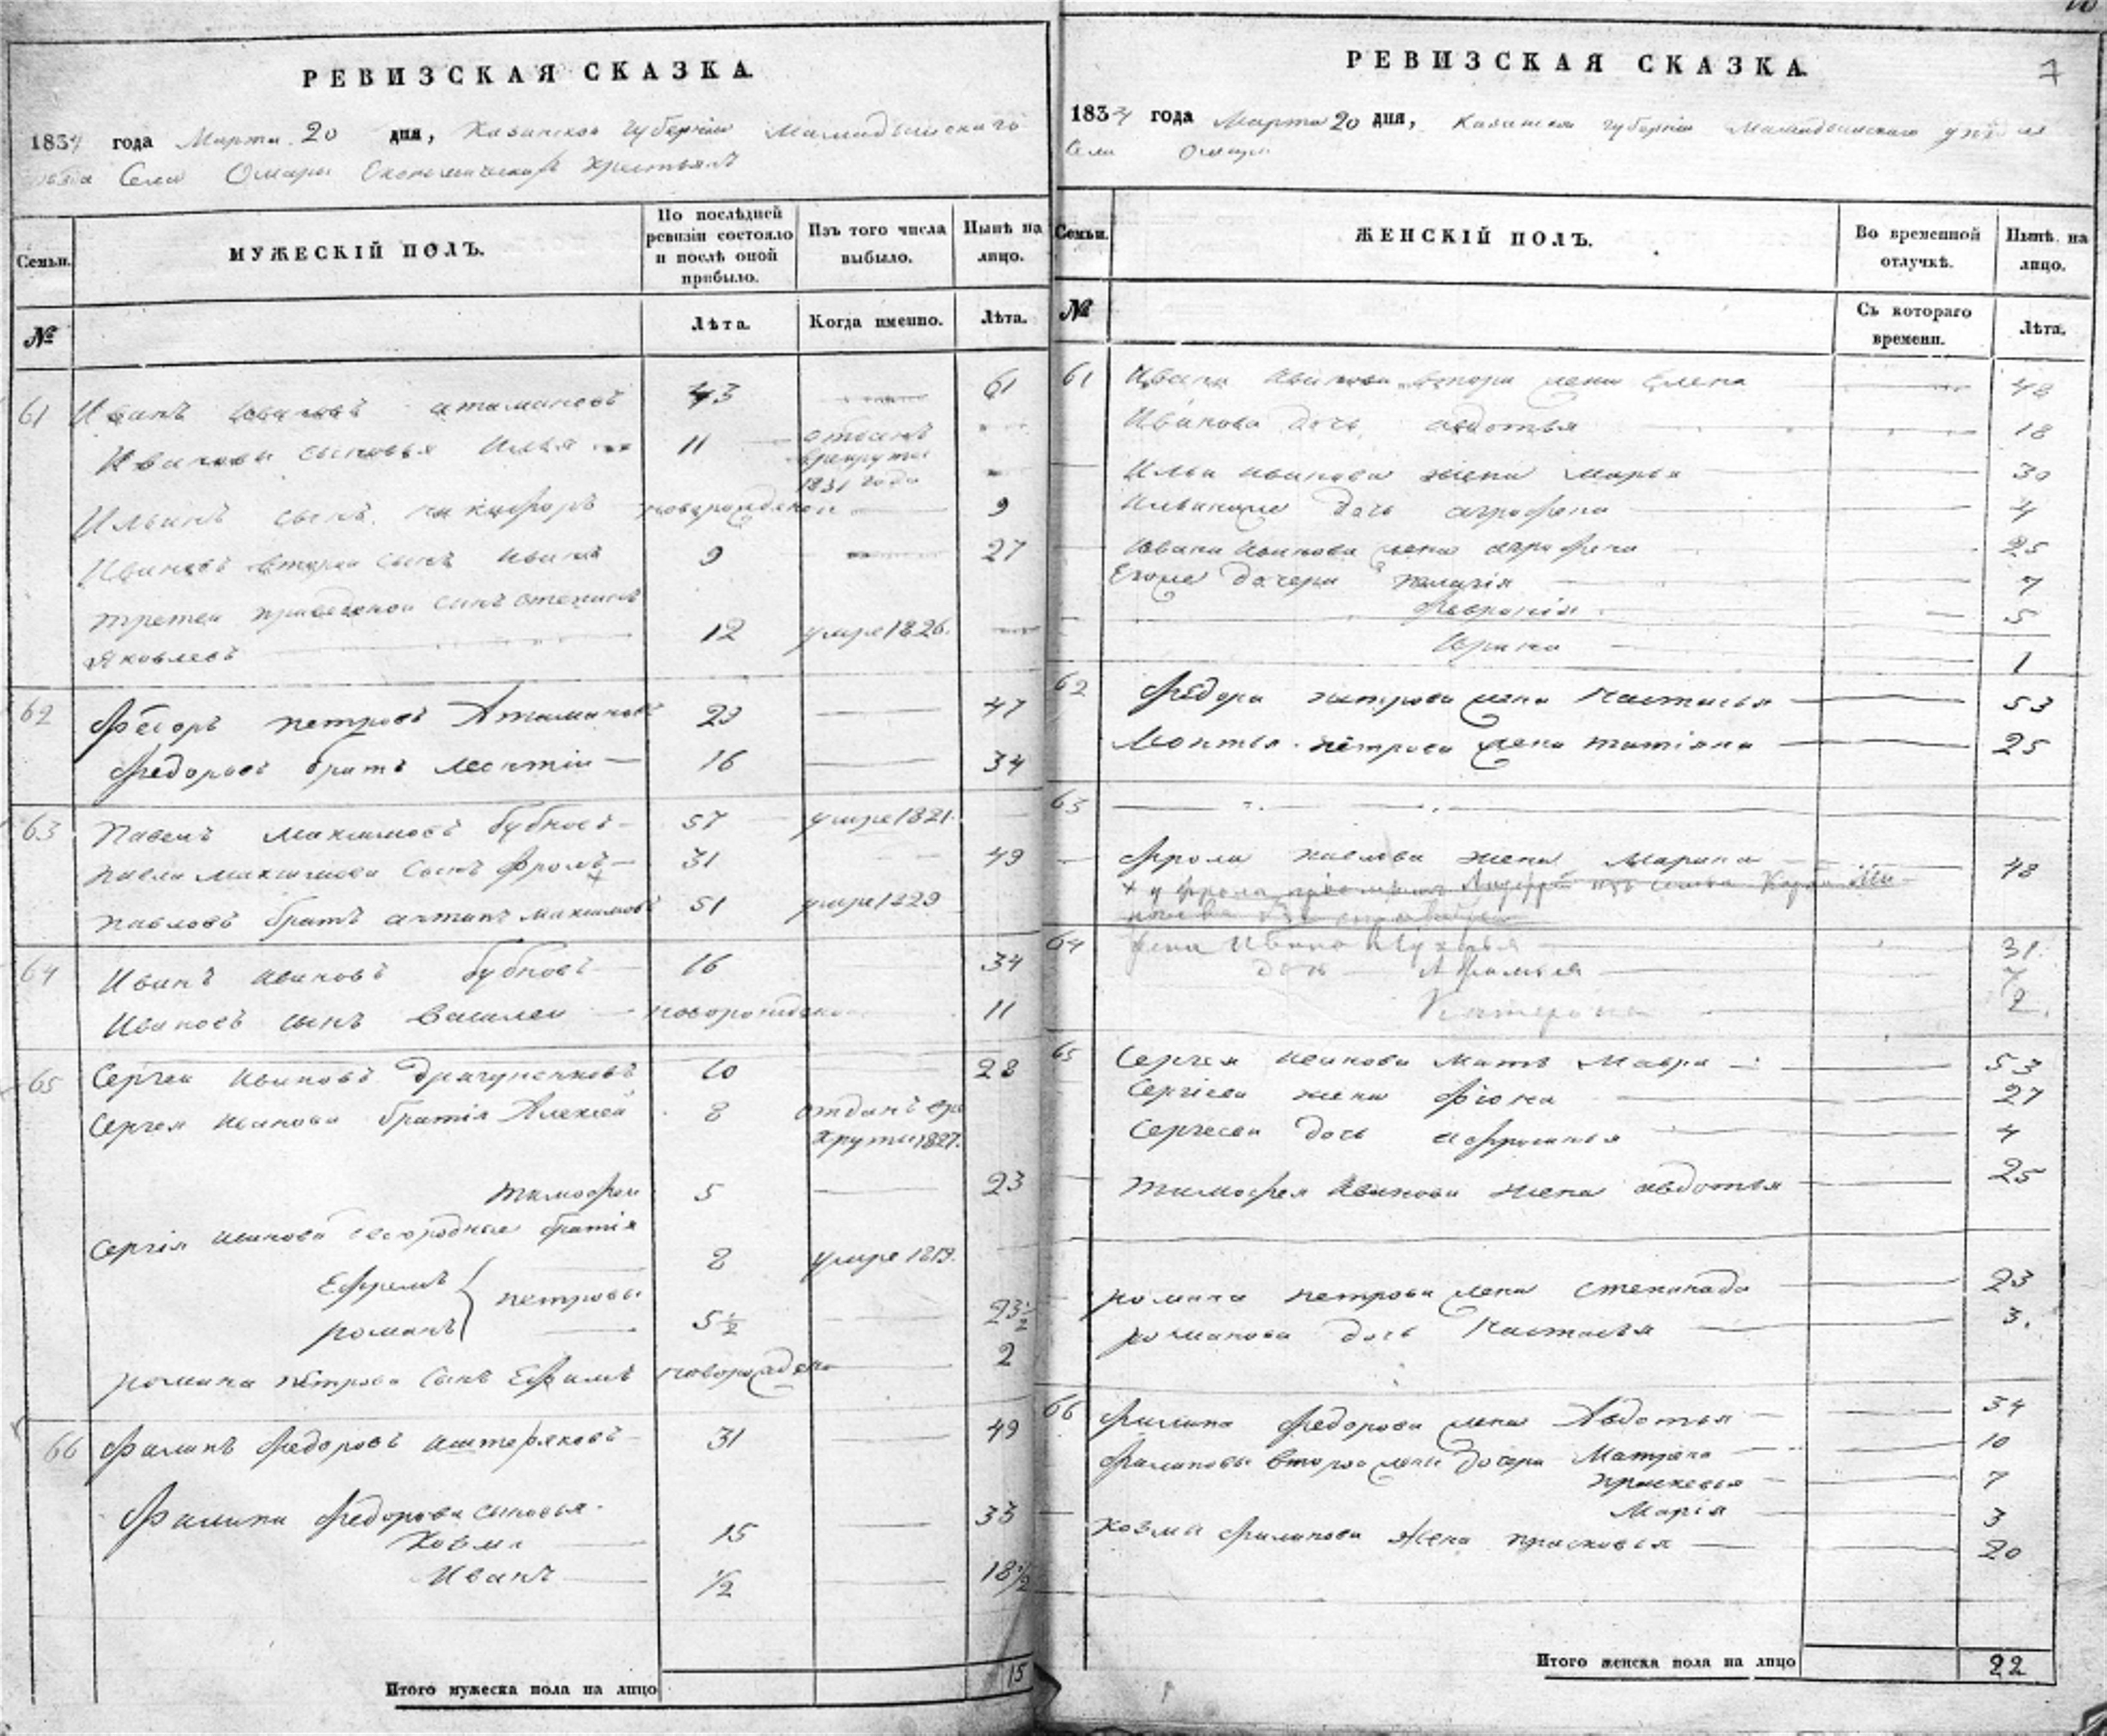 РЕВИЗСКАЯ СКАЗКА.
1834 года Марта 20 дня, Казанской губернии Мамадышскаго
Села Омары Економическихъ крестьянъ
Семьи.
МУЖЕСКІЙ ПОЛЪ.
По послѣдней ревизіи состояло и послѣ оной прибыло.
Изъ того числа выбыло.
Нынѣ на лицо.
№
Лѣта.
Когда именно.
Лѣта.
61 Иванъ Ивановъ атамановъ 43 61
Иванова сыновья Илья 11 отданъ
врекруты
1831 года
Ильинъ сынъ никифоръ новорожденои 9
Ивановъ второи сынъ иванъ 9 27
третеи приведенои сынъ степанъ
Яковлевъ 12 умре 1826.
62 Федоръ петровъ Атамановъ 29 47
Федоровъ братъ леонтии 16 34
63 Павелъ максимовъ бубновъ 57 умре 1821.
павла максимова сынъ фролъ 31 49
павловъ братъ антипъ максимовъ 51 умре 1829
64 Иванъ ивановъ бубновъ 16 34
Ивановъ сынъ василеи новорожденои 11
65 Сергеи ивановъ драгуненковъ 10 28
Сергея иванова братія Алексей 8 отданъ вре
круты 1827.
тимофеи 5 23
Сергія иванова двоюродные братія
Ефремъ петровы 8 умре 1819.
романъ 5½ 23½
романа петрова сынъ Ефимъ новорожденъ 2
66 Филипъ Федоровъ аштеряковъ 31 49
Филипа Федорова сыновья
Козма 15 33
Иванъ ½ 18½
Итого мужеска пола на лицо 15
7
РЕВИЗСКАЯ СКАЗКА.
1834 года Марта 20 дня, Казанской губерніи Мамадышскаго уѣзда
Села Омары
Семьи.
ЖЕНСКІЙ ПОЛЪ.
Во временной отлучкѣ.
Нынѣ на лицо.
№
Съ котораго времени.
Лѣта.
61 Ивана Иванова втора жена Елена 48
Иванова дочь авдотья 18
Ильи иванова жена марья 30
Ильина дочь аграфена 4
Ивана Иванова жена аграфена 25
Егоже дочери пелагія 7
Февронія 5
Ирина 1
62 Федора петрова жена Настасья 53
Леонтья петрова жена татіяна 25
63
Фрола павлова жена Марина 48
64 жена Ивана 31
дочь 7
Катерина 2
65 Сергея иванова мать мавра 53
Сергіева жена Фіона 27
Сергеева дочь афросинья 4
тимофея Иванова жена авдотья 25
романа петрова жена степанида 23
романова дочь Настасья 3.
66 Филипа Федорова жена Авдотья 34
Филиповы второи жены дочери Матрена 10
прасковья 7
Марія 3
Козмы филипова жена прасковья 20
Итого женска пола на лицо 22